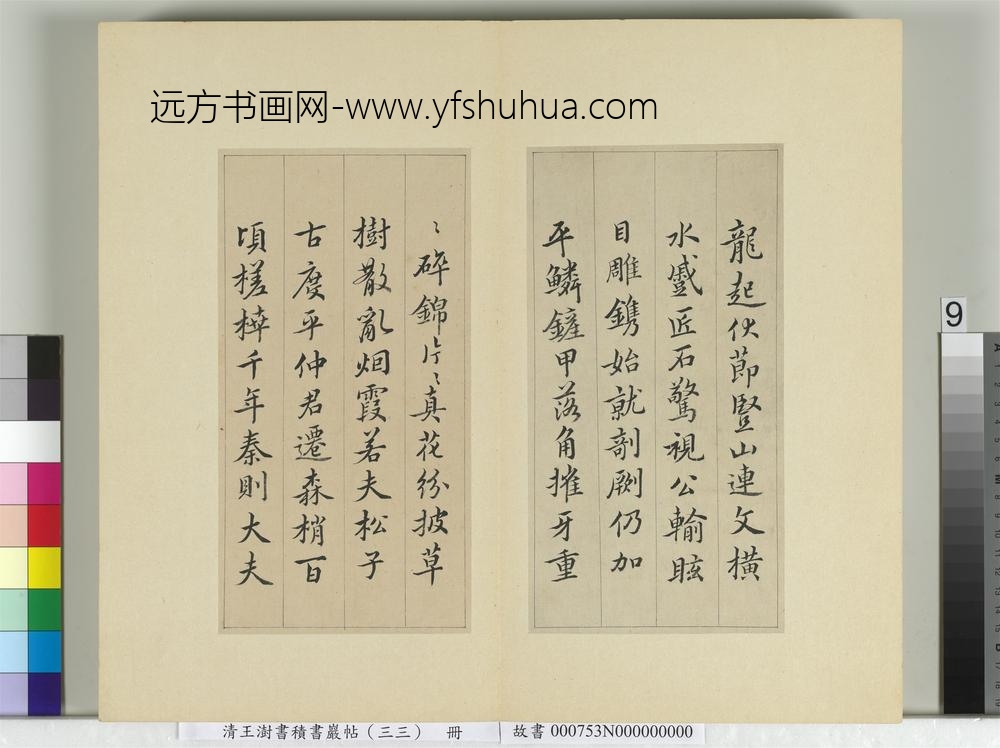 远方书画网-www.yfshuhua.com
龍起伏節豎山連文橫
水蹙匠石驚視公輸眩
目雕鐫始就剞劂仍加
平鱗鏟甲落角摧牙重
〻碎錦片〻真花紛披草
樹散亂烟霞若夫松子
古度平仲君遷森梢百
頃槎枿千年秦則大夫
9
清王澍書積書巖帖（三三） 冊
故書 000753N000000000